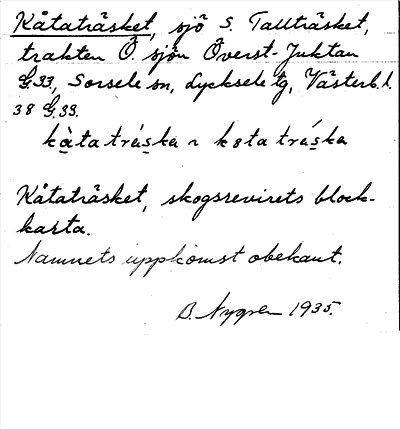 Kåtaträsket, sjö S. Tallträsket,
trakten Ö. sjön Överst-Juktan
G.33, Sorsele sn, Lycksele tg, Västerb. l.
38 G.33.
kàtatráska ~ kotatráska
Kåtaträsket, skogsrevirets block-
karta.
Namnets uppkomst obekant.
B. Nygren 1935.